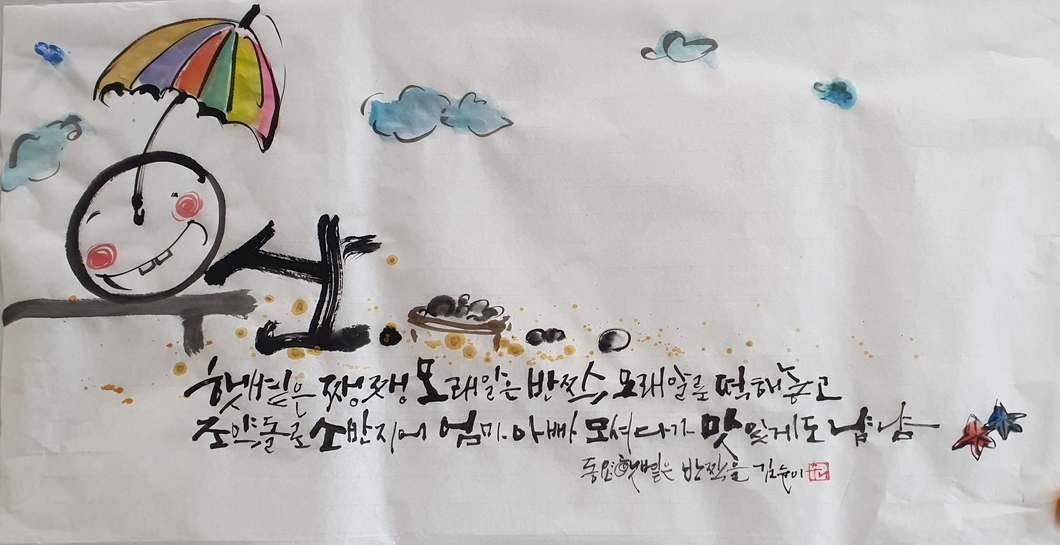 우산
햇볕은 쨍쨍 모래알은 반짝 모래알로 떡해놓고
조약돌로 소반지어 엄마 아빠 모셔다가 맛있게도 냠냠
동요 햇볕은 반짝을